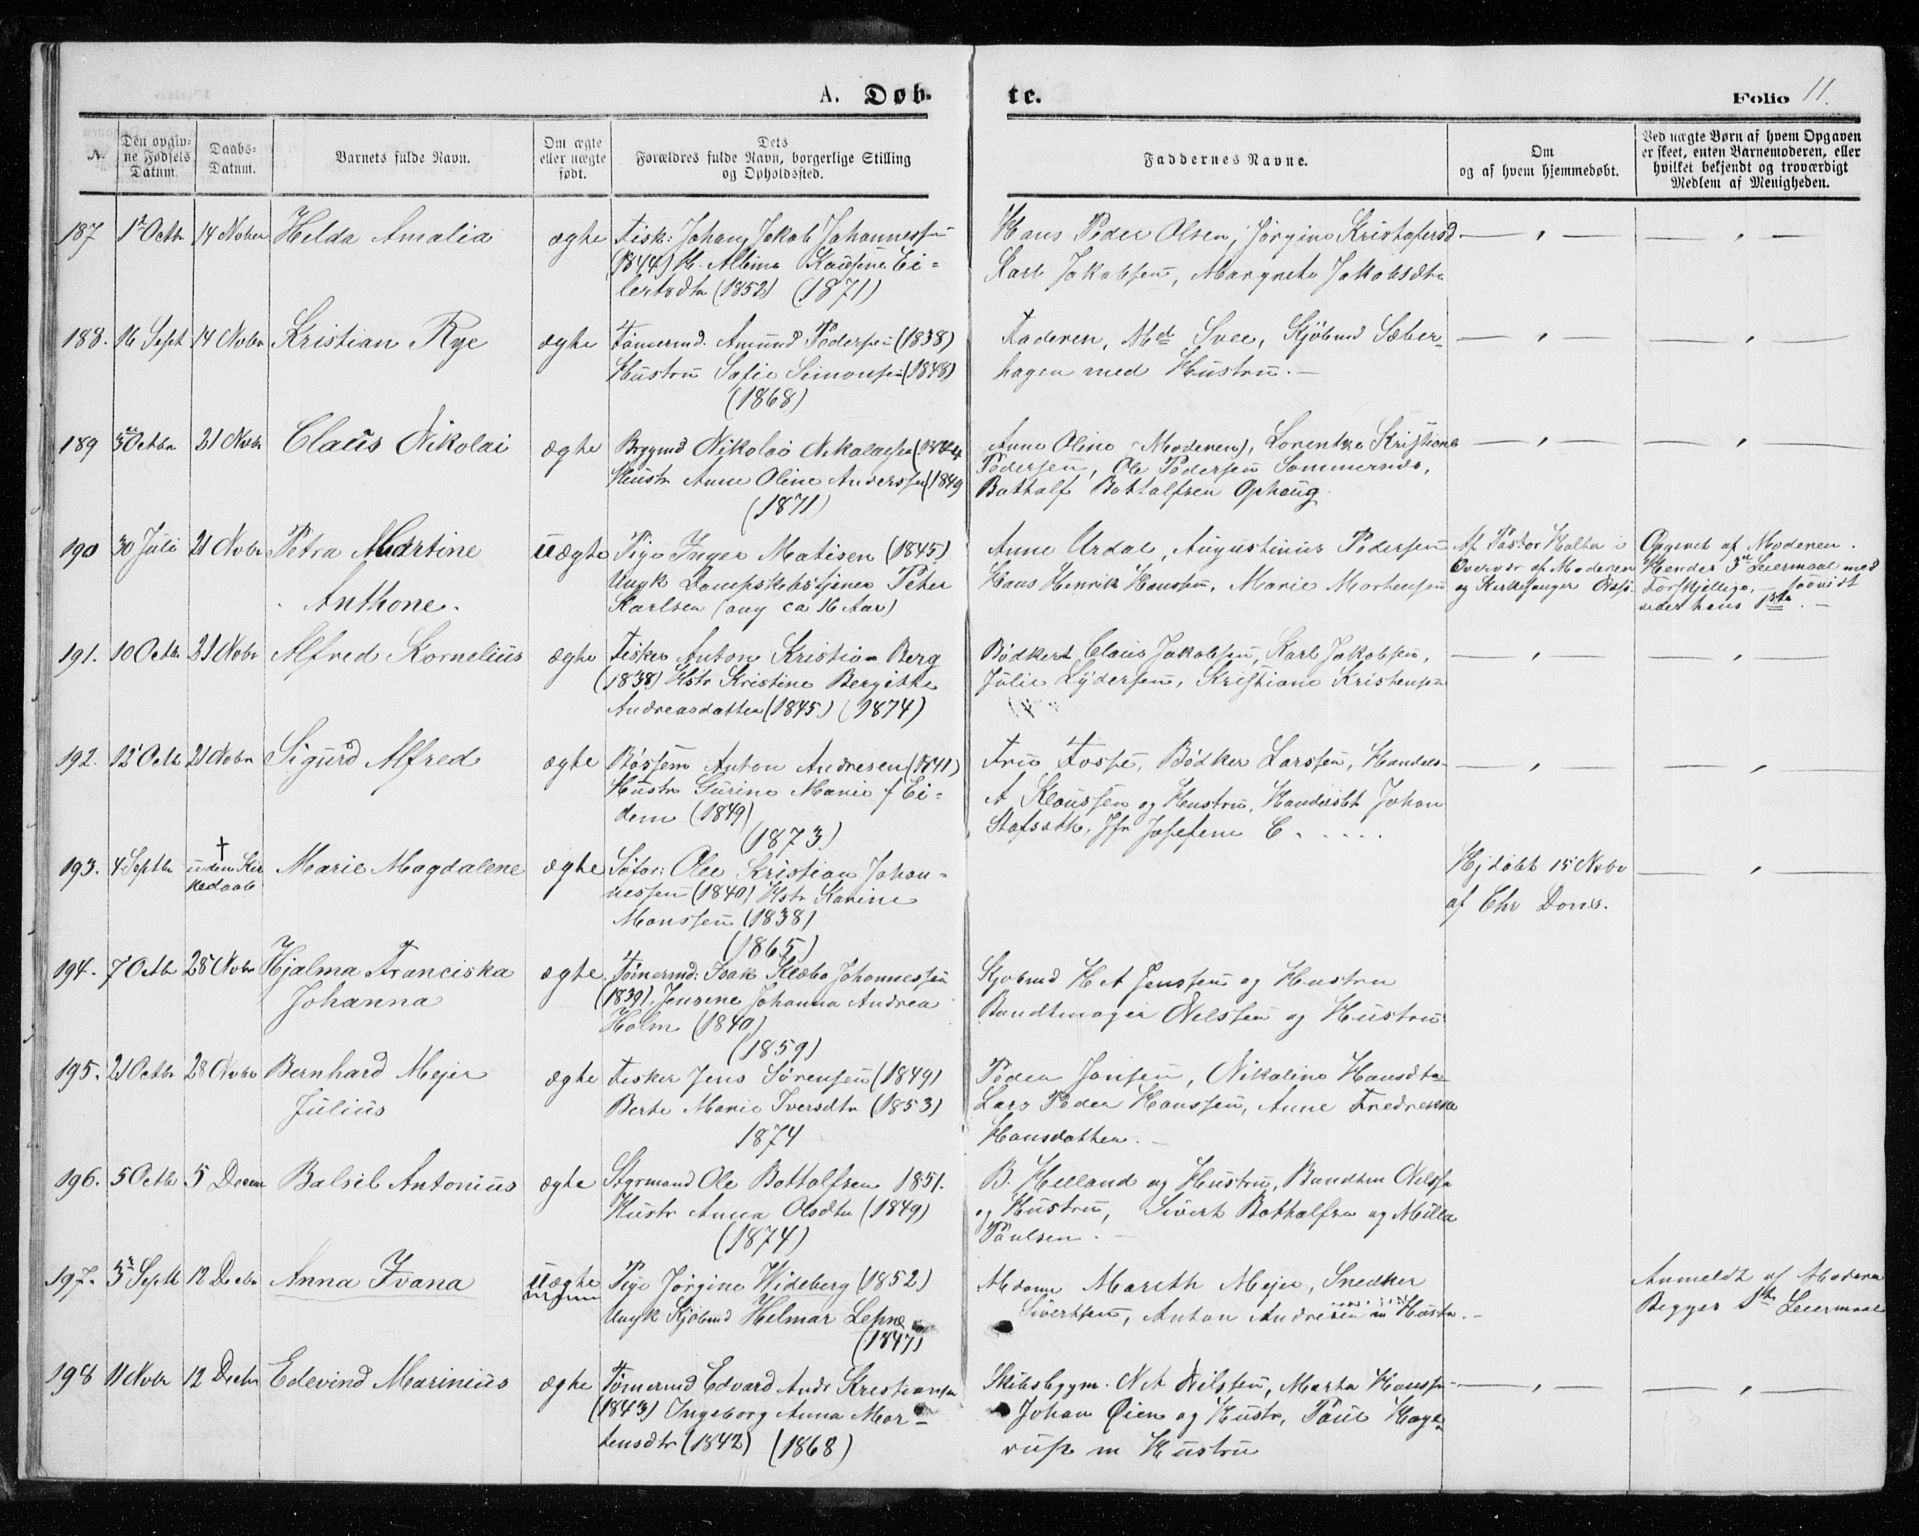 A. Døb-
te.
Folio 11.
No.
Den opgiv-
ne Fødsels
Datum.
Daabs-
Datum.
Barnets fulde Navn.
Om ægte
eller uægte
født.
Dets
Forældres fulde Navn, borgerlige Stilling
og Opholdssted.
Faddernes Navne.
Om
og af hvem hjemmedøbt.
Ved uægte Børn af hvem Opgaven
er skeet, enten Barnemoderen, eller
hvilket bekjendt og troværdigt
Medlem af Menigheden.
187 1 Octbr 14 Novbr Helda Amalia ægte Fisk: Johan Jakob Johannessen
(1844) H. Albine Ei-
lertsdtr (1852) (1871)
Hans Peder Olsen, Jørgine Kristofersd
Karl Jakobsen, Margrete Jakobsdtr
188. 16 Sept 14 Novbr Kristian Rye ægte Tømermd. Amund Pedersen (1838)
Hustru Sofie Simonsen (1848)
(1868)
Faderen, Md Svee, Kjøbmd Sæter-
hagen med Hustru. —
189 3 Octbr 21 Novbr Claus Nikolai ægte Byggmd Nikolai Nikolaisen (1844
Hustr Anne Oline Anderssen (1849
(1871)
Anne Oline (Moderen), Lorentze Kristiane
Pedersen, Ole Pedersen Sommernes,
Bothalf Bothalfsen Ophaug.
190 30 Juli 21 Novbr Petra Martine uægte Pige Inger Matisen (1845)
Anthone.
Ungk Dampskibstjener Peter
Karlsen (ang ca 16 Aar)
Anne Urdal, Augustinus Pedersen
Hans Henrik Hanssen, Marie Mortensen
Af Pastor Halter i
Overvær af Moderen
og Kirkesanger
Opgivet af Moderen.
Hendes 3 Leiermaal med
Forskjellige, saavidt
vides hans 1ste. —
191. 10 Octbr 21 Novbr Alfred Kornelius ægte Fisker Anton Kristian Berg
(1838) Hstr Kristine Bergithe
Andreasdatter (1845) (1874)
Bødker Claus Jakobsen, Karl Jakobsen,
Julie Lydersen, Kristiane Kristensen
192. 12 Octb 21 Novbr Sigurd Alfred ægte Bøssem Anton Andresen (1841)
Hustr Gurine Marie f Ei-
dem (1849)
(1873)
Fru Fosse, Bødker Larssen, Handels-
A Klaussen og Hustru, Handelsbt Johan
Stafseth, Jfr Josefene C. . . . . .
193. 4 Septbr † uden Kir
kedaab Marie Magdalene ægte Ole Kristian Johan-
nessen (1840) Hstr Karine
Monssen (1838)
(1865)
Hj døbt 15 Novbr
af Chr Dons.
194. 7 Octb 28 Novbr Hjalma Franciska
Johanna
ægte. Tømermd: Isak Klæbo Johannessen
(1839), Jensine Johanna Andrea
Holm (1840)
(1859)
Kjøbmd H A Jenssen og Hustru
Bundtmager Nilssen og Hustru
195. 21 Octbr 28 Novbr Bernhard Mejer
Julius
ægte Fisker Jens Sørensen (1849)
Berte Marie Iversdtr (1853)
1874
Peder Jonsen, Nikoline Hansdtr
Lars Peder Hanssen, Anne Fredrekke
Hansdatter. —
196. 5 Octb 5 Decem Balsil Antonius ægte Styrmand Ole Bottolfsen 1851.
Hustr Anna Olsdtr (1849)
(1874)
B. Helland og Hustru, Bundtm Nilssen
og Hustru, Sivert Bothalfsen og Milla
Paulsen. —
197. 3 Septb 12 Decbr Anna Ivana uægte Pige Jørgine Wideberg (1852)
Ungk Kjøbmd Helmar Lehne
(1847)
Madame Mareth Mejer, Snedker
Sivertsen, Anton Andresen m Hustr. —
Anmeldt af Moderen
Begges 1ste Leiermaal
198 11 Novbr 12 Decbr Edevind Marinius ægte Tømermd Edvard Andr Kristiansen
(1843) Ingeborg Anna Mor-
tensdtr (1842) (1868)
Skibsbygm. N A Nilssen, Marta Hanssen
Johan Øien og Hustr, Paul Hage-
rup m Hustru